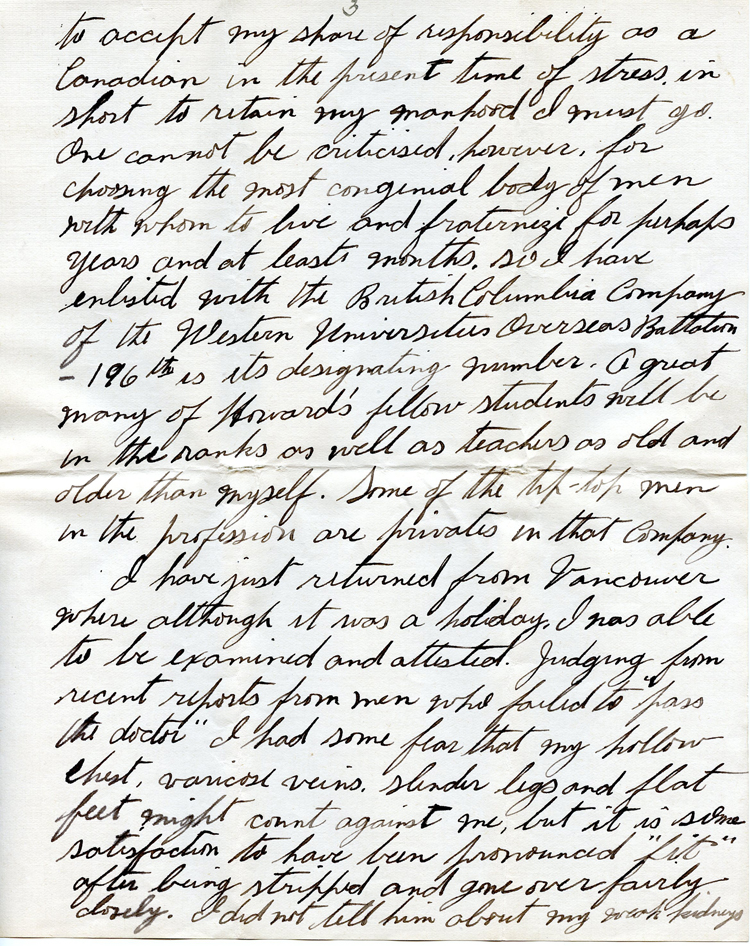 3
to accept my share of responsibility as a
Canadian in the present time of stress, in
short to retain my manhood I must go.
One cannot be criticised, however, for
choosing the most congenial body of men
with whom to live and fraternize for perhaps
years and at least months, so I have
enlisted with the British Columbia Company
of the Western Universities Overseas Battalion
- 196th is its designating number. A great
many of Howard's fellow students will be
in the ranks as well as teachers as old and
older than myself. Some of the tip-top men
in the profession are privates in that Company.
I have just returned from Vancouver
where although it was a holiday, I was able
to be examined and attested. Judging from
recent reports from men who failed to "pass
the doctor" I had some fear that my hollow
chest, varicose veins, slender legs and flat
feet might count against me, but it is some
satisfaction to have been pronounced "fit"
after being stripped and gone over fairly
closely. I did not tell him about my weak kidneys